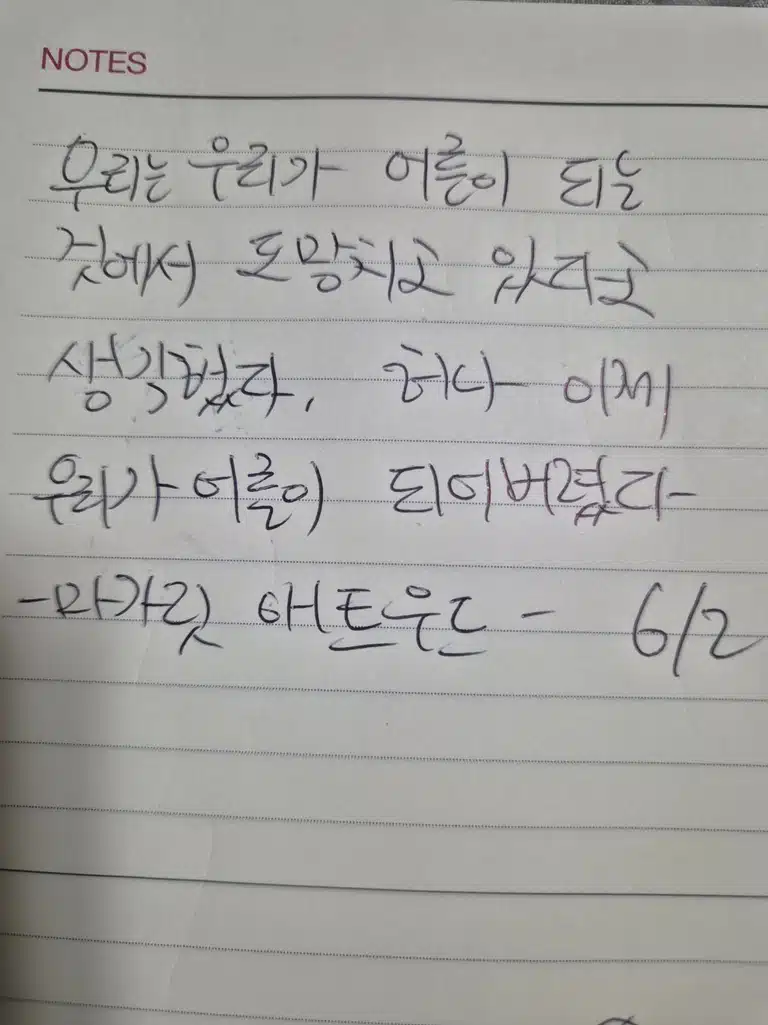 NOTES
우리는 우리가 어른이 되는
것에서 도망치고 있다고
생각했다. 허나 이제
우리가 어른이 되어버렸다
-마가릿 애트우드- 6/2